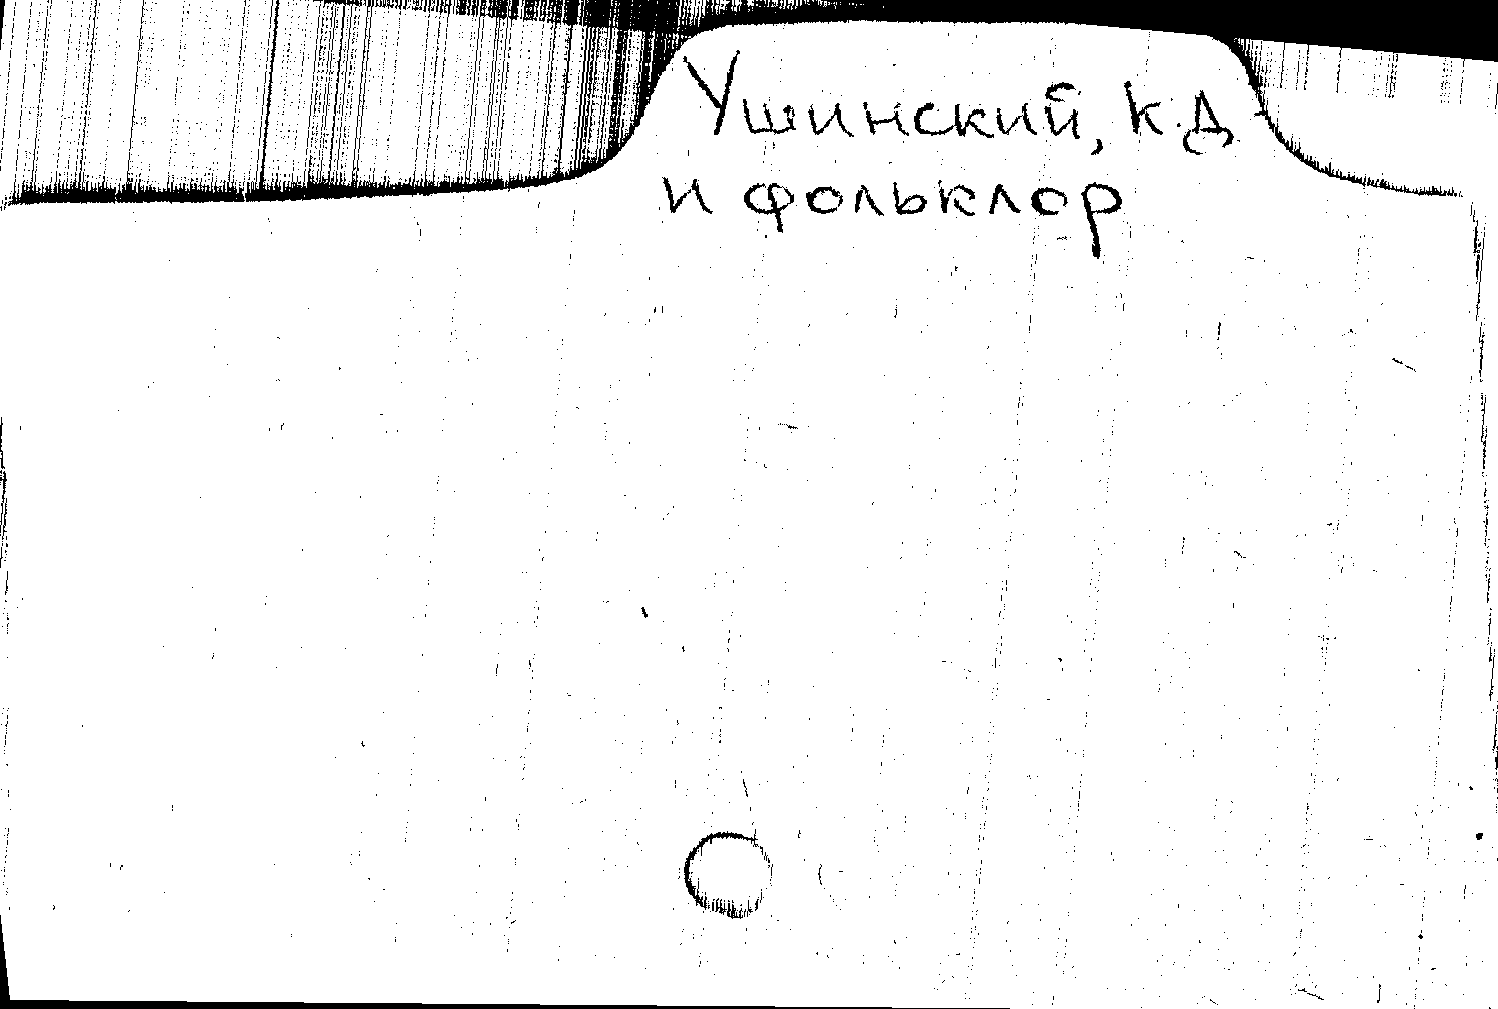 Ушинский, К.Д
и фольклор